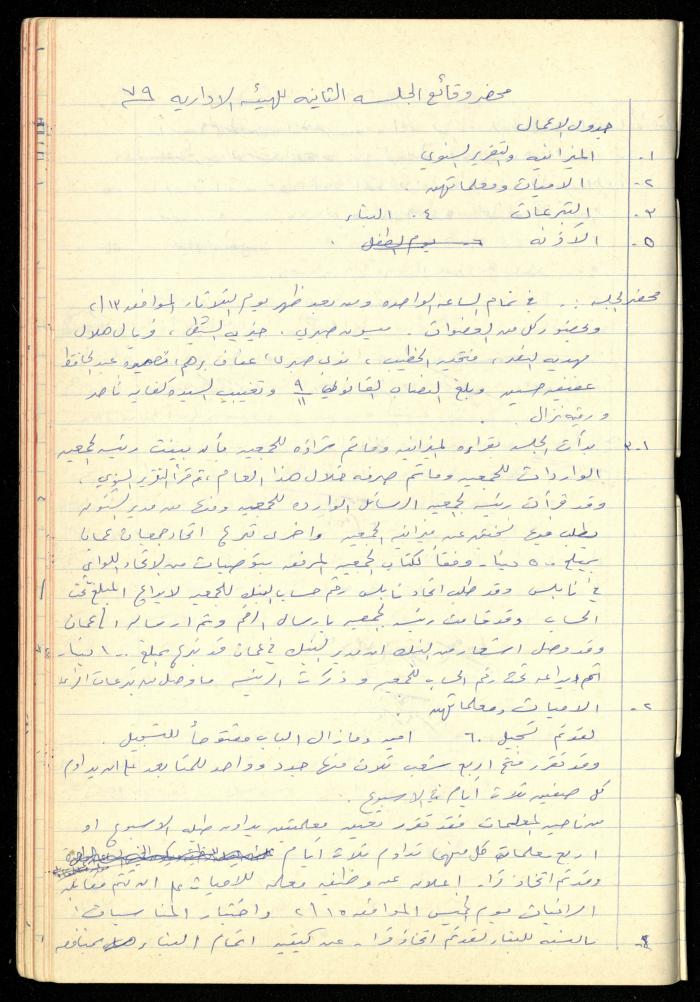 محضر وقائع الجلسه الثانيه للهيئه الاداريه ٧٩
جدول الاعمال
١- الميزانيه والتقرير السنوي
٢- الاميات ومعلماتهن
٣- التبرعات ٤. البناء
٥- الآذنه ٦- يوم الطفل .
محضر الجلسه :. في تمام الساعه الواحده ومن بعد ظهر يوم الثلاثاء الموافق ٢/١٣
وبحضور كل من العضوات . ميسون صبري ، فريال هلال
مهديه ، فتحيه الخطيب ، صبري ، عفاف عبد الحافظ
عفيفه حسين وبلغ النصاب القانوني ٩/١١ وتغيبت السيده كفايه ناصر
ورقيه نزال .
١-٣ بدأت الجلسه بقراءه الميزانيه وما تم للجمعيه بأن بينت رئيسه الجمعيه
الواردات للجمعيه وما تم صرفه خلال هذا العام ، ثم قرأ التقرير السنوي .
وقد قرأت رئيسه الجمعيه الرسائل الوارده للجمعيه ومنها من مدير الشئون
يطلب فيها نسختين عن ميزانيه الجمعيه واخرى تبرع اتحاد جمعيات عمان
بمبلغ ٥٠٠ دينار وفقاً لكتاب الجمعيه المرفق بتوصيات من الاتحاد اللوائي
في نابلس وقد طلب اتحاد نابلس رقم حساب البنك للجمعيه لايداع المبلغ تحت
الحساب وقد قامت رئيسه الجمعيه بارسال الرقم وتم ارساله الى عمان
وقد وصل اشعار من البنك ان مدير البنك في عمان قد تبرع بمبلغ ١٠٠ دينار
تم ايداعه تحت رقم الحساب للجمعيه وذكرت الرئيسه ما وصل من تبرعات
٢- الاميات ومعلماتهن
لقد تم تسجيل ٦٠ اميه وما زال الباب مفتوحاً للتسجيل .
وقد تقرر فتح اربع شعب ثلاث منها جدد وواحد للمتابعه على ان يداوم
كل صفين ثلاث أيام في الاسبوع .
من ناحيه المعلمات فقد تقرر تعيين معلمتين يداومن طيله الاسبوع او
اربع معلمات كل منهن تداوم ثلاث أيام
وقد تم اتخاذ قرار اعلان عن وظيفه معلمه للاميات على ان تتم مقابله
الراغبات يوم الخميس الموافق ٢/١٥ واختيار المناسبات .
٤- بالنسبه للبناء لقد تم اتخاذ قرار عن كيفيه اتمام البناء